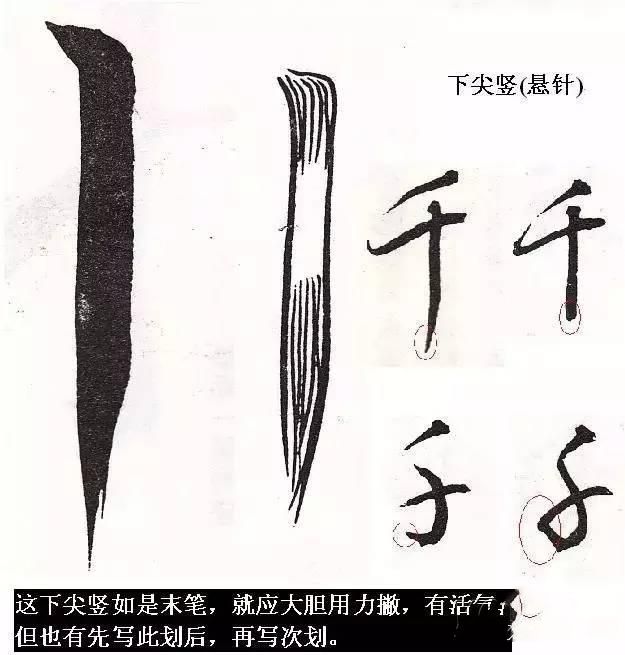 下尖竖(悬针)
千 千
千 千
这下尖竖如是末笔，就应大胆用力撇，有活气；
但也有先写此划后，再写次划。